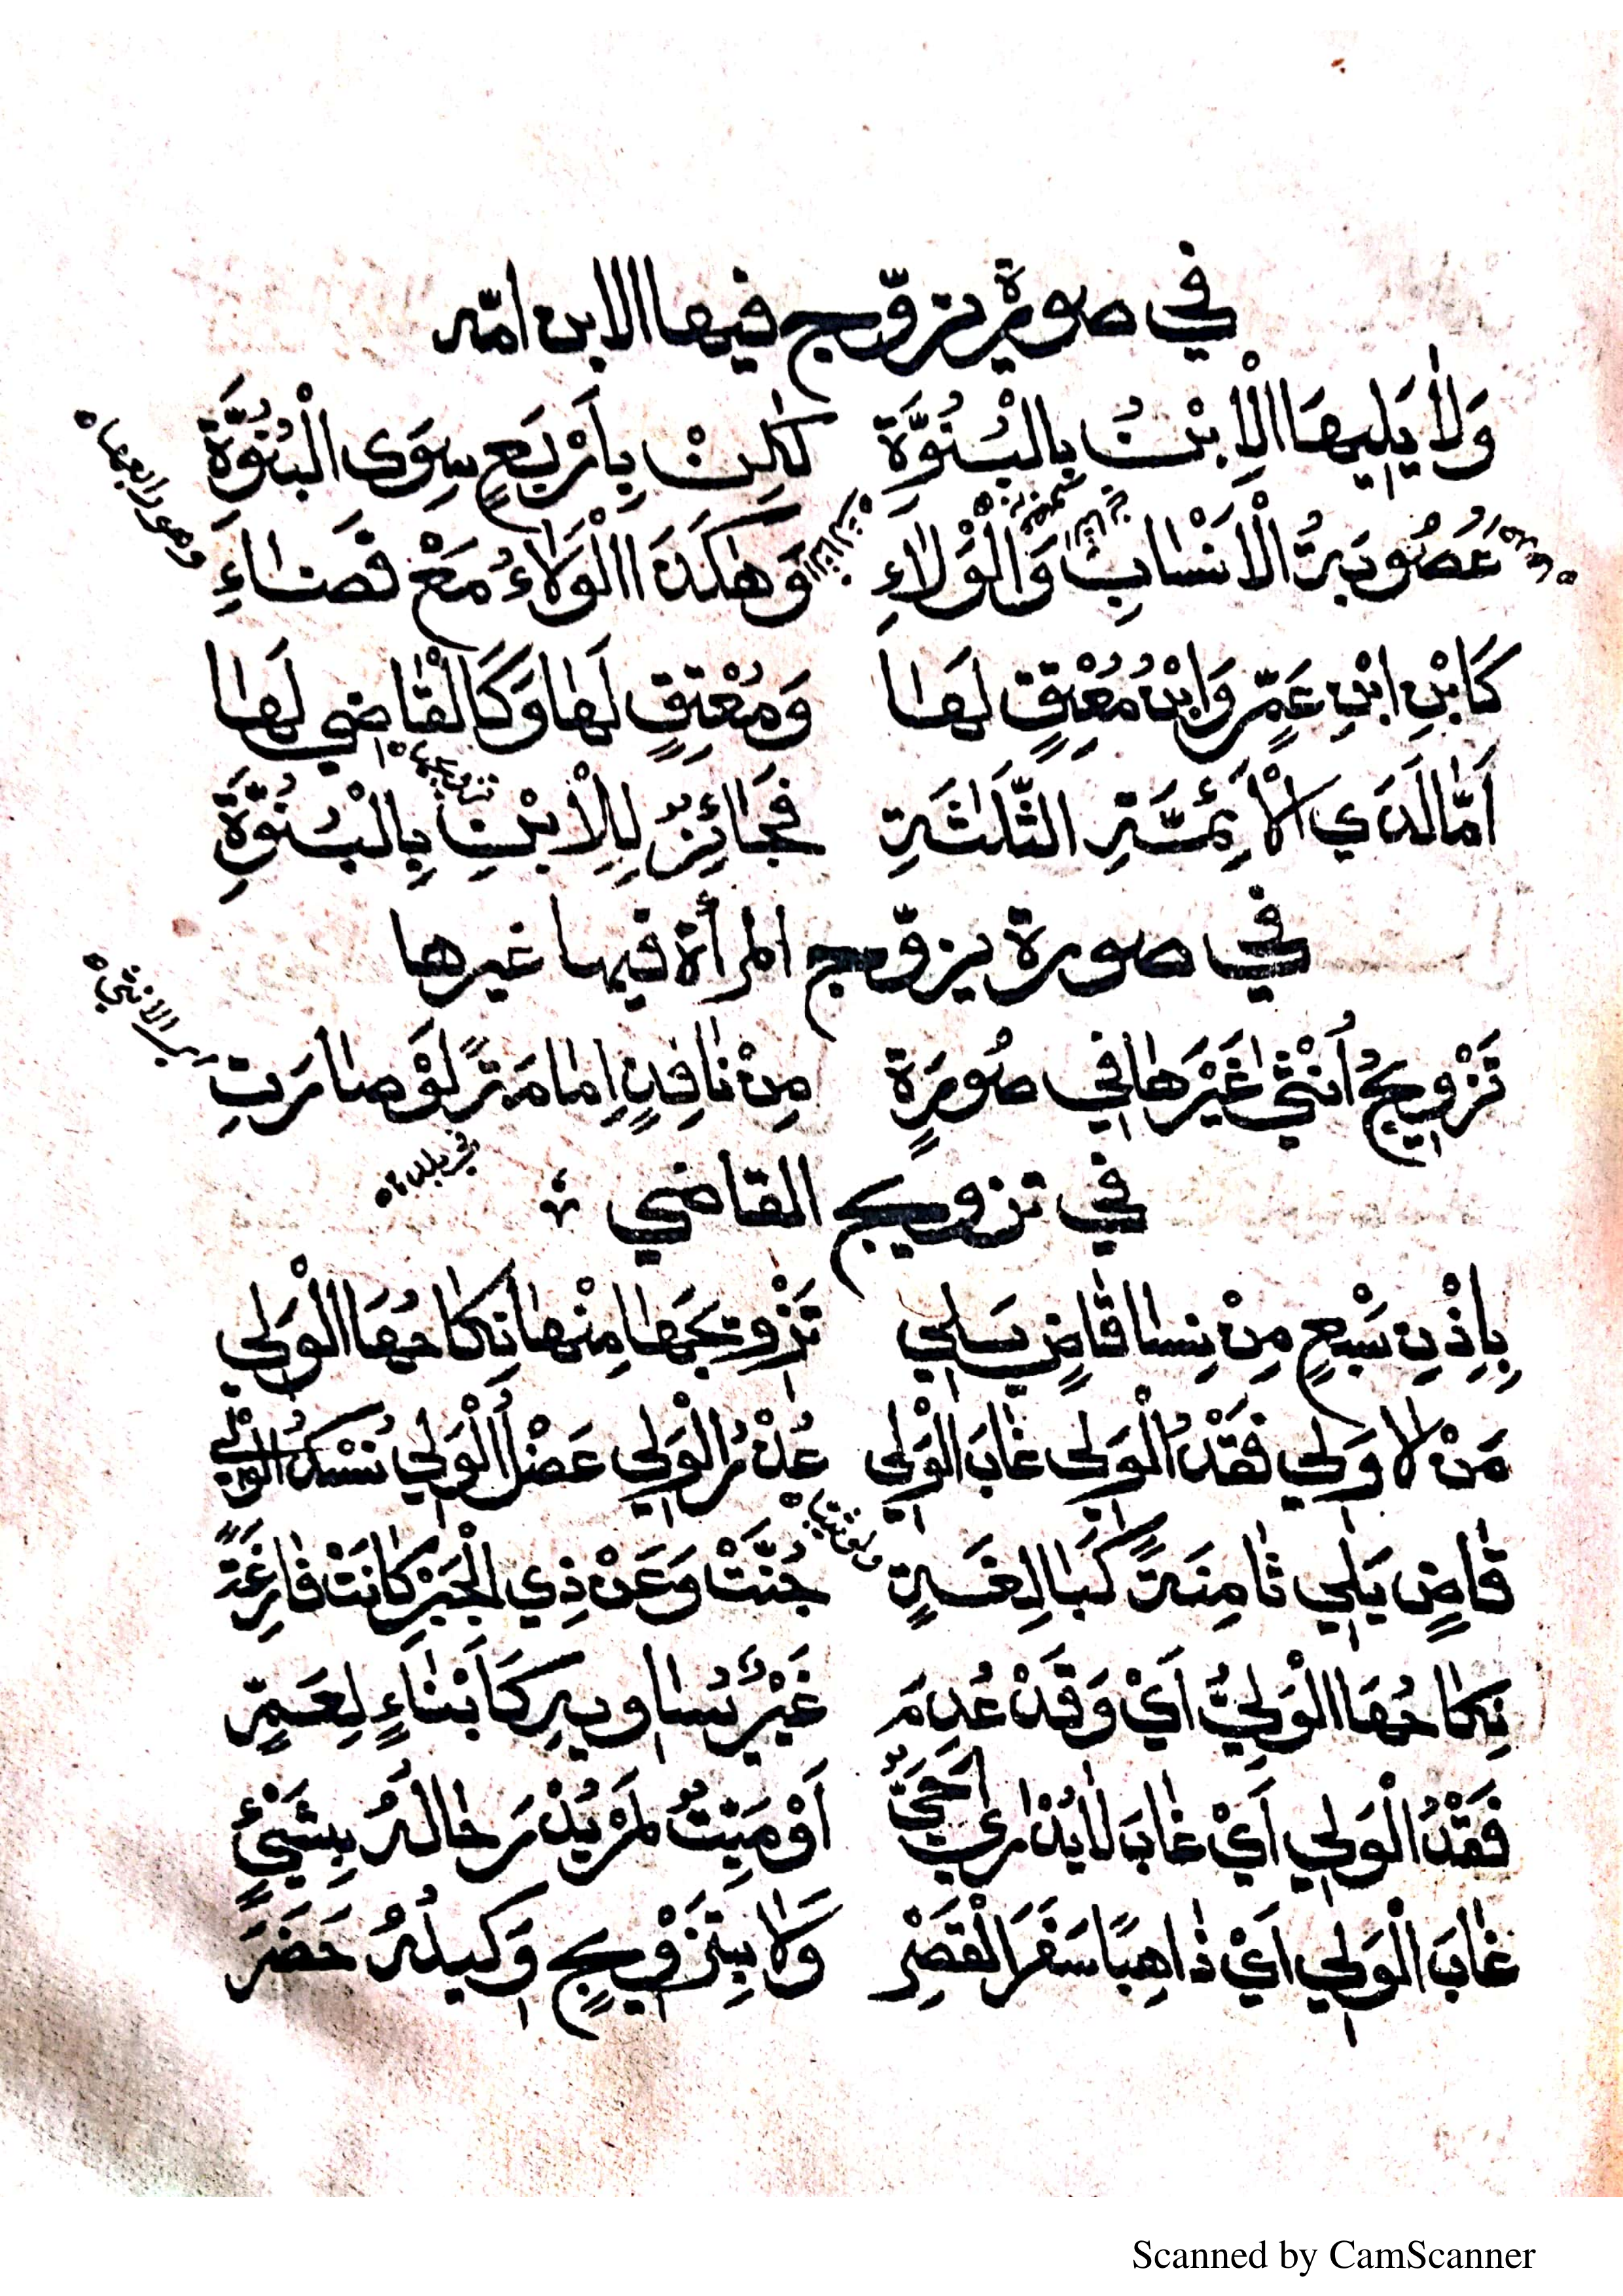 في صورة يزوّج فيها الابن امّه
وَلَا يَلِيهَا الْاِبْنُ بِالْبُنُوَّةِ لٰكِنْ بِاَرْبَعٍ سِوَى الْبُنُوَّةِ
وهو رابعها
عُصُوبَةُ الْاَنْسَابِ وَالْوَلَاءِ وَهٰكَذَا الْوَلَاءُ مَعْ قَضَاءِ
كَابْنِ ابْنِ عَمٍّ وَابْنُ مُعْتِقٍ لَهَا وَمُعْتِقٍ لَهَا وَكَالْقَاضِي لَهَا
تزويجها
اَمَّا لَدَى الْاَئِمَّةِ الثَّلَاثَةِ فَجَائِزٌ لِلْاِبْنِ بِالْبُنُوَّةِ
في صورة يزوّج المرأة فيها غيرها
الانثى
تَزْوِيجُ اُنْثٰى غَيْرَهَا فِي صُورَةٍ مِنْ نَافِذٍ اِمَامَةً لَوْ صَارَتِ
في تزويج القاضي
بِاِذْنِ سَبْعٍ مِنْ نِسَا قَاضٍ يَلِي تَزْوِيجَهَا مِنْهَا نِكَاحُهَا الْوَلِي
مَنْ لَا وَلِي فَقْدُ الْوَلِي غَابَ الْوَلِي عُذْرُ الْوَلِي عَضْلُ الْوَلِي نُسْكُ الْوَلِي
ولو ثيبا
قَاضٍ يَلِي ثَامِنَةً كَبَالِغَةٍ جُنَّتْ وَعَنْ ذِي الْجَبْرِ كَانَتْ فَارِغَةً
نِكَاحُهَا الْوَلِيُّ اَيْ وَقَدْ عُدِمَ غَيْرٌ يُسَاوِيهِ كَاَبْنَاءٍ لِعَمٍّ
فَقْدُ الْوَلِي اَيْ غَابَ لَا يُدْرٰى اَحَيٌّ اَوْ مَيِّتٌ لَمْ يُدْرَ حَالُهُ بِشَيْءٍ
غَابَ الْوَلِي اَيْ ذَاهِبًا سَفَرَ الْقَصْرِ وَلَا بِتَزْوِيجٍ وَكِيلُهُ حَضَرَ
Scanned by CamScanner